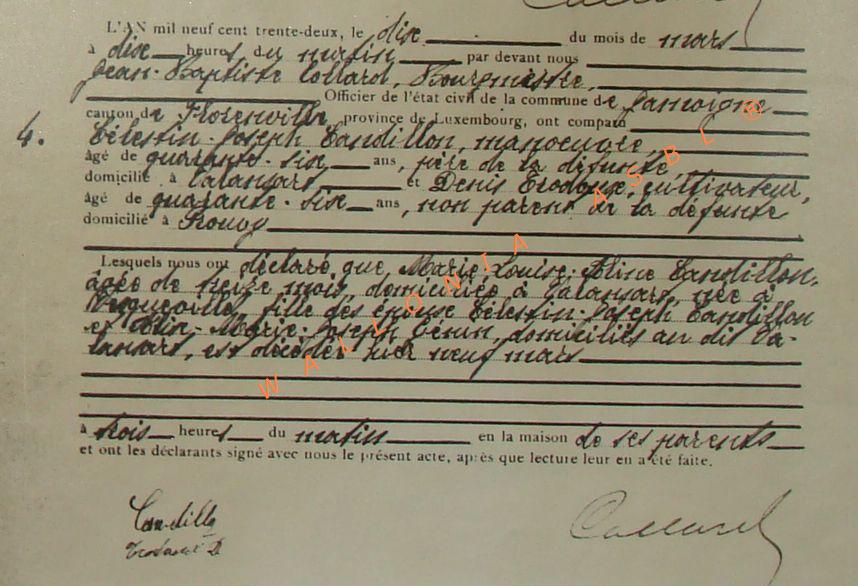 L'AN mil neuf cent trente-deux, le dix du mois de mars
à dix heures du matin par devant nous
Jean-Baptiste Collard, Bourgmestre,
Officier de l'état civil de la commune de Jamoigne
canton de Florenville, province de Luxembourg, ont comparu
4. Célestin-Joseph Tandillon, manoeuvre,
âgé de quarante-six ans, père de la défunte,
domicilié à Valansart et Denis cultivateur,
âgé de quarante-six ans, non parent de la défunte
domicilié à Prouvy
Lesquels nous ont déclaré que Marie-Louise-Aline Tandillon,
âgée de treize mois, domiciliée à Valansart, née à
fille des époux Célestin-Joseph Tandillon
et Marie-Joseph domiciliés au dit Va-
lansart, est décédée hier neuf mars
à trois heures du matin en la maison de ses parents
et ont les déclarants signé avec nous le présent acte, après que lecture leur en a été faite.
Collard
WALLONIA ASBL ®